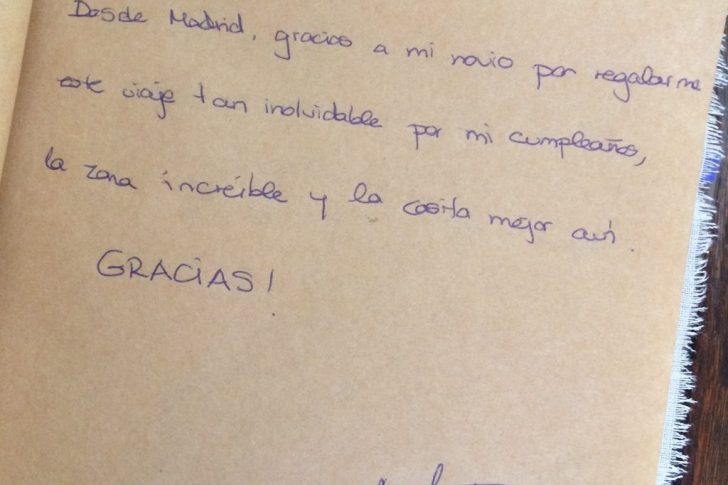 Desde Madrid, gracias a mi novio por regalarme
este viaje tan inolvidable por mi cumpleaños,
la zona increíble y la casita mejor aún.
GRACIAS!